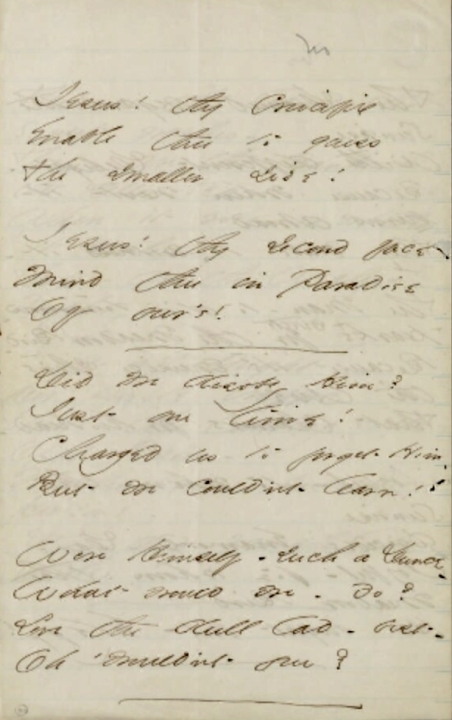 Jesus! thy Crucifix
Enable thee to guess
The smaller size!
Jesus! thy second face
Mind thee in Paradise
Of our's!
Did we disobey Him?
Just one time!
Charged us to forget Him
But we couldn't learn!
Were Himself - such a Dunce
What would we - do?
Love the dull lad - best -
Oh wouldn't you?